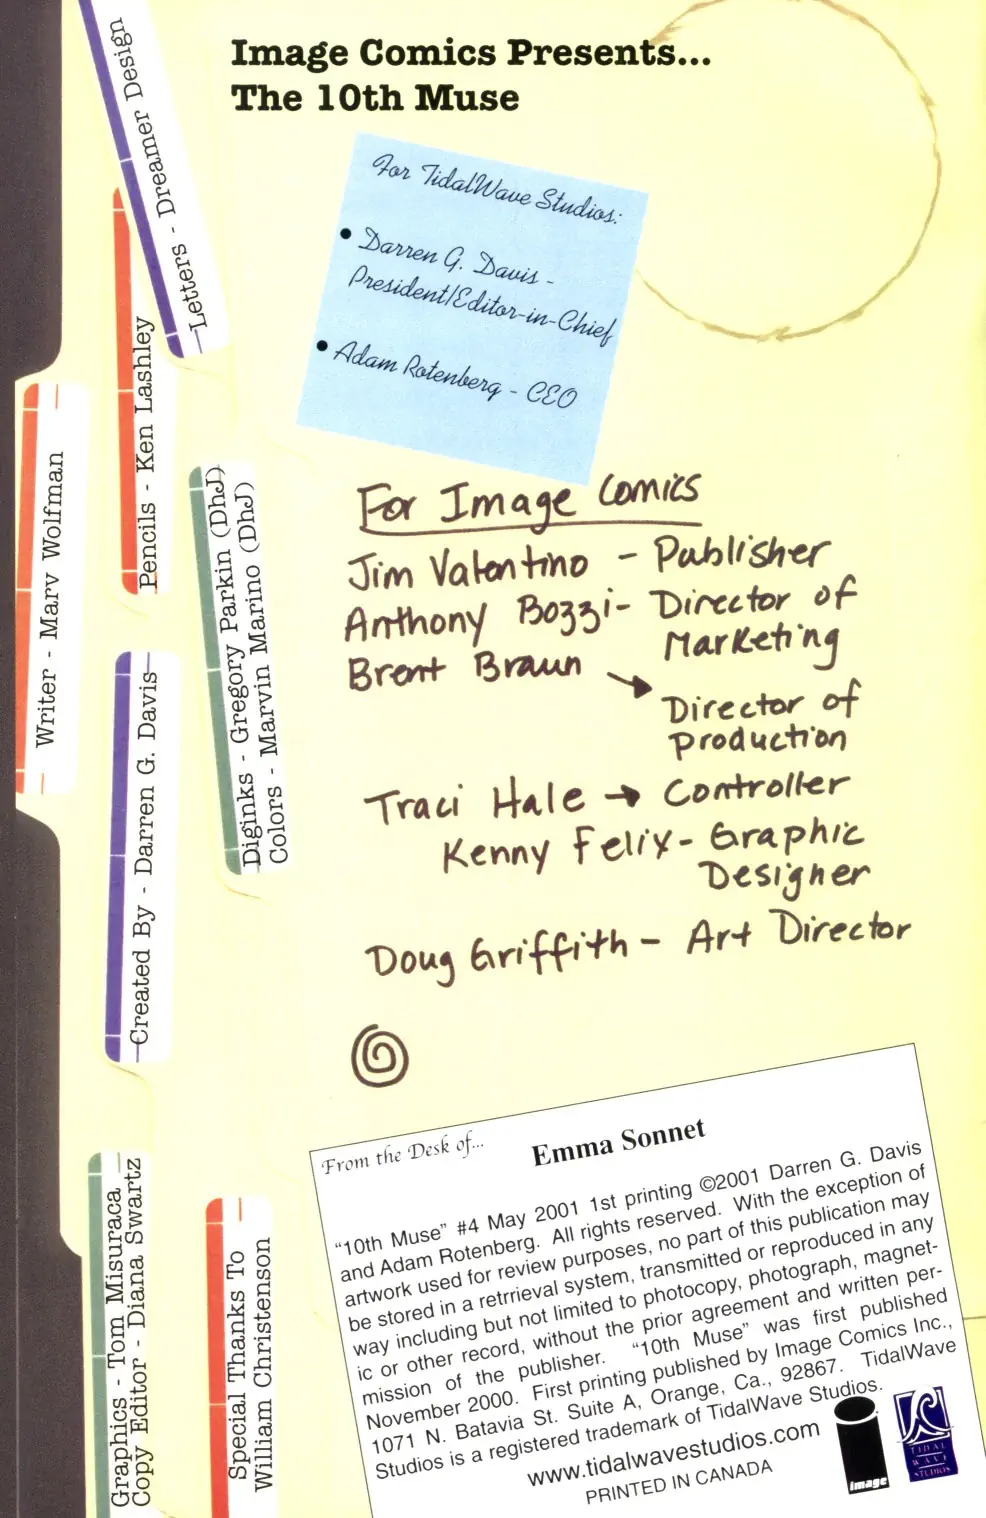 Image Comics Presents...
The 10th Muse
Letters - Dreamer Design
Pencils - Ken Lashley
Writer - Marv Wolfman
Diginks - Gregory Parkin (DhJ)
Colors - Marvin Marino (DhJ)
Created By - Darren G. Davis
Graphics - Tom Misuraca
Copy Editor - Diana Swartz
Special Thanks To
William Christenson
For TidalWave Studios:
• Darren G. Davis -
President/Editor-in-Chief
• Adam Rotenberg - CEO
For Image Comics
Jim Valentino - Publisher
Anthony Bozzi - Director of
Marketing
Brent Braun →
Director of
production
Traci Hale → Controller
Kenny Felix - Graphic
Designer
Doug Griffith - Art Director
From the Desk of...
Emma Sonnet
“10th Muse” #4 May 2001 1st printing ©2001 Darren G. Davis
and Adam Rotenberg. All rights reserved. With the exception of
artwork used for review purposes, no part of this publication may
be stored in a retrrieval system, transmitted or reproduced in any
way including but not limited to photocopy, photograph, magnet-
ic or other record, without the prior agreement and written per-
mission of the publisher. “10th Muse” was first published
November 2000. First printing published by Image Comics Inc.,
1071 N. Batavia St. Suite A, Orange, Ca., 92867. TidalWave
Studios is a registered trademark of TidalWave Studios.
www.tidalwavestudios.com
PRINTED IN CANADA
image
TIDAL
WAVE
STUDIOS